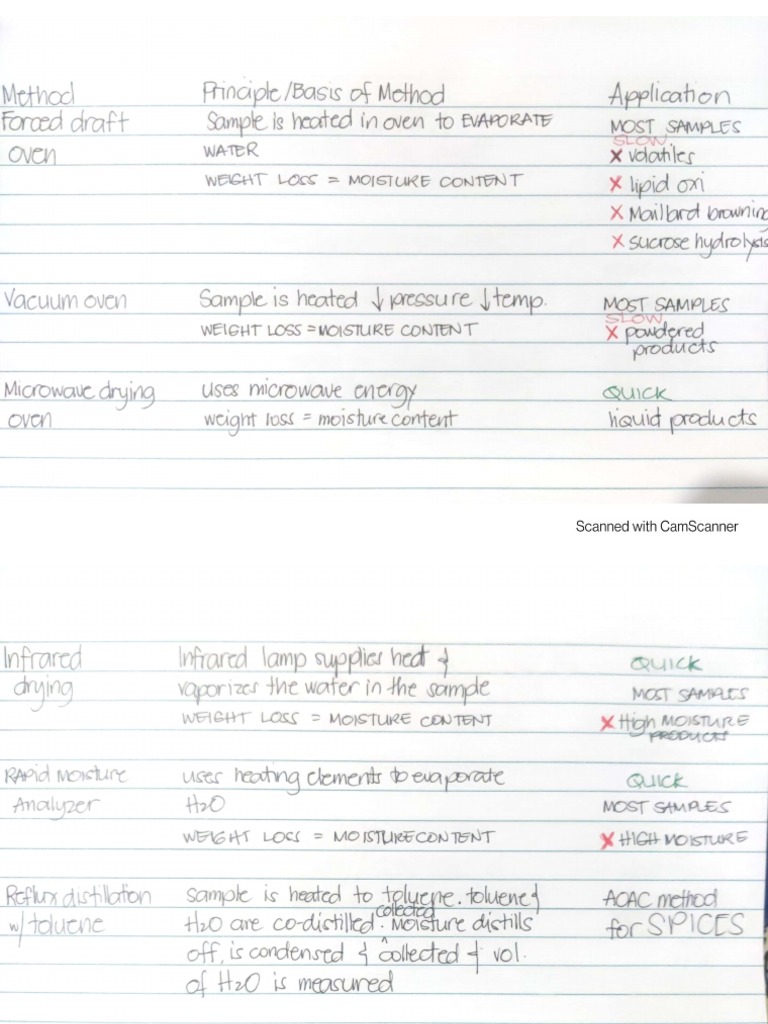 Method Principle/Basis of Method Application
Forced draft Sample is heated in oven to EVAPORATE MOST SAMPLES
SLOW
oven WATER x volatiles
WEIGHT LOSS = MOISTURE CONTENT x lipid oxi
x Maillard browning
x sucrose hydrolysis
Vacuum oven Sample is heated ↓ pressure ↓ temp. MOST SAMPLES
SLOW
WEIGHT LOSS = MOISTURE CONTENT x powdered
products
Microwave drying uses microwave energy QUICK
oven weight loss = moisture content liquid products
Scanned with CamScanner
Infrared Infrared lamp supplies heat & QUICK
drying vaporizes the water in the sample MOST SAMPLES
WEIGHT LOSS = MOISTURE CONTENT x High MOISTURE
PRODUCTS
RAPID MOISTURE uses heating elements to evaporate QUICK
Analyzer H2O MOST SAMPLES
WEIGHT LOSS = MOISTURE CONTENT x HIGH MOISTURE
Reflux distillation sample is heated to toluene. toluene & AOAC method
collected
w/ toluene H2O are co-distilled. Moisture distills for SPICES
off, is condensed & collected & vol.
of H2O is measured